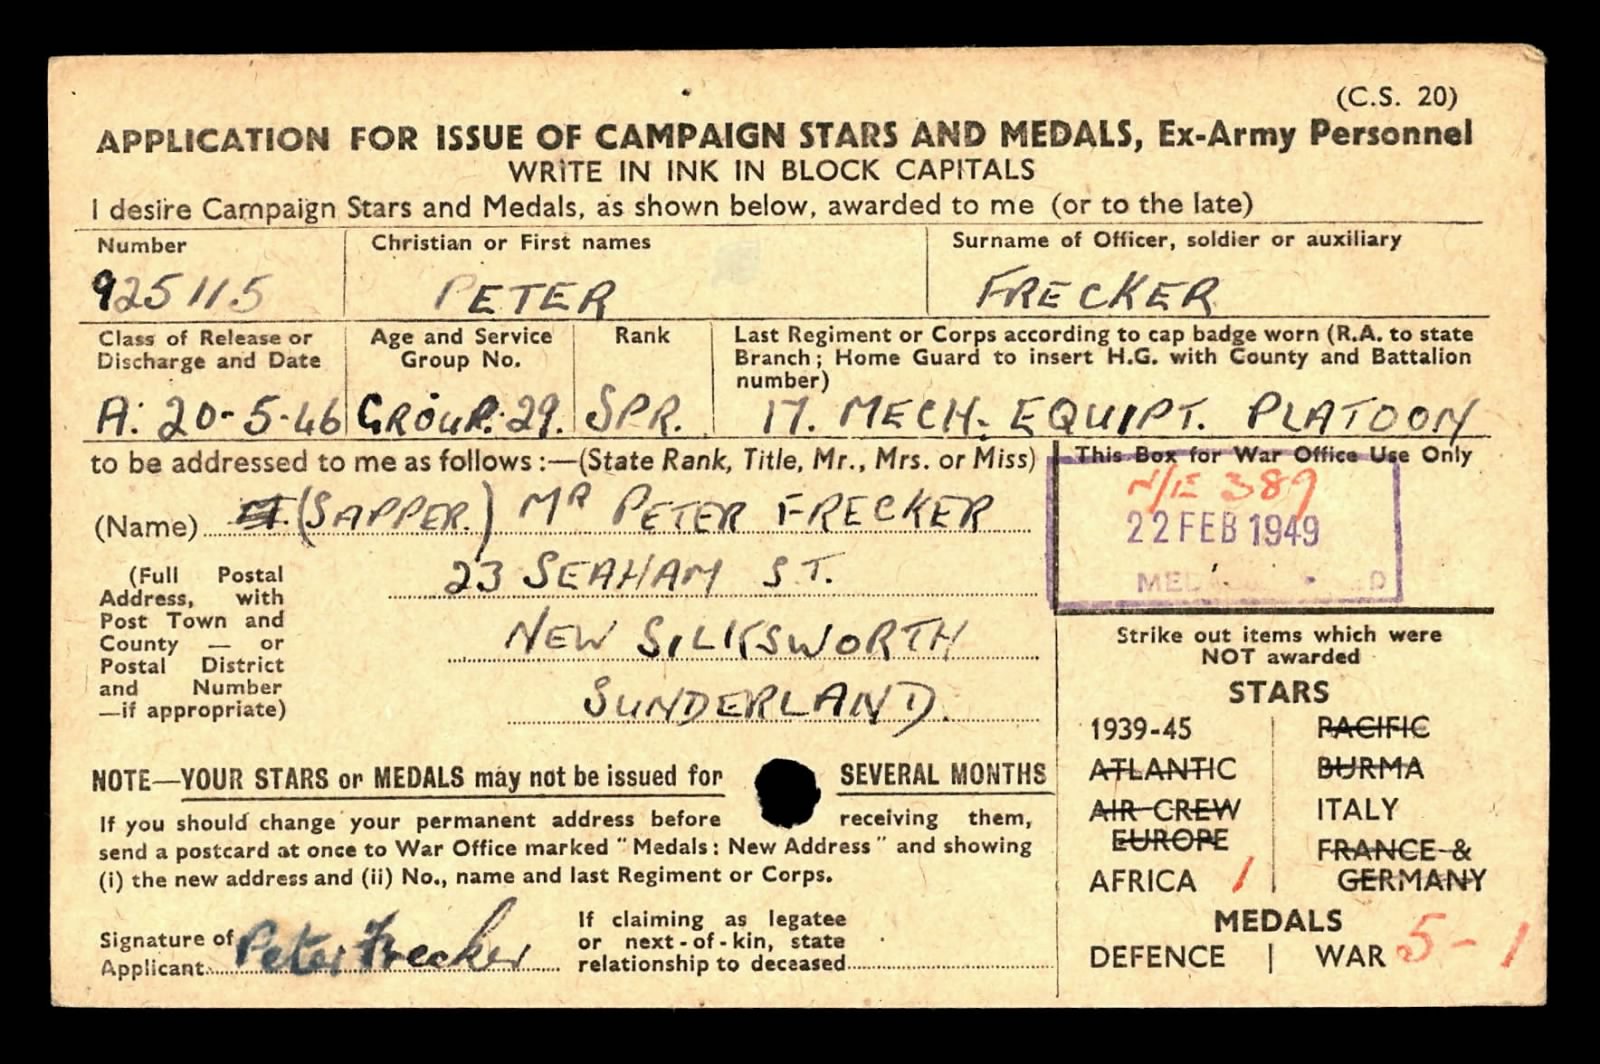 (C.S. 20)
APPLICATION FOR ISSUE OF CAMPAIGN STARS AND MEDALS, Ex-Army Personnel
WRITE IN INK IN BLOCK CAPITALS
I desire Campaign Stars and Medals, as shown below, awarded to me (or to the late)
Number
925115
Christian or First names
PETER
Surname of Officer, soldier or auxiliary
FRECKER
Class of Release or
Discharge and Date
A: 20-5-46
Age and Service
Group No.
GROUP. 29.
Rank
SPR.
Last Regiment or Corps according to cap badge worn (R.A. to state
Branch; Home Guard to insert H.G. with County and Battalion
number)
17. MECH. EQUIPT. PLATOON
to be addressed to me as follows:—(State Rank, Title, Mr., Mrs. or Miss)
(Name) (SAPPER.) MR PETER FRECKER
(Full Postal
Address, with
Post Town and
County — or
Postal District
and Number
—if appropriate)
23 SEAHAM ST.
NEW SILKSWORTH
SUNDERLAND.
This Box for War Office Use Only
N/E 389
22 FEB 1949
Strike out items which were
NOT awarded
STARS
1939-45
ATLANTIC
AIR CREW
EUROPE
AFRICA 1
PACIFIC
BURMA
ITALY
FRANCE &
GERMANY
MEDALS
DEFENCE | WAR 5 - 1
NOTE—YOUR STARS or MEDALS may not be issued for SEVERAL MONTHS
If you should change your permanent address before receiving them,
send a postcard at once to War Office marked "Medals: New Address" and showing
(i) the new address and (ii) No., name and last Regiment or Corps.
Signature of
Applicant Peter Frecker
If claiming as legatee
or next-of-kin, state
relationship to deceased